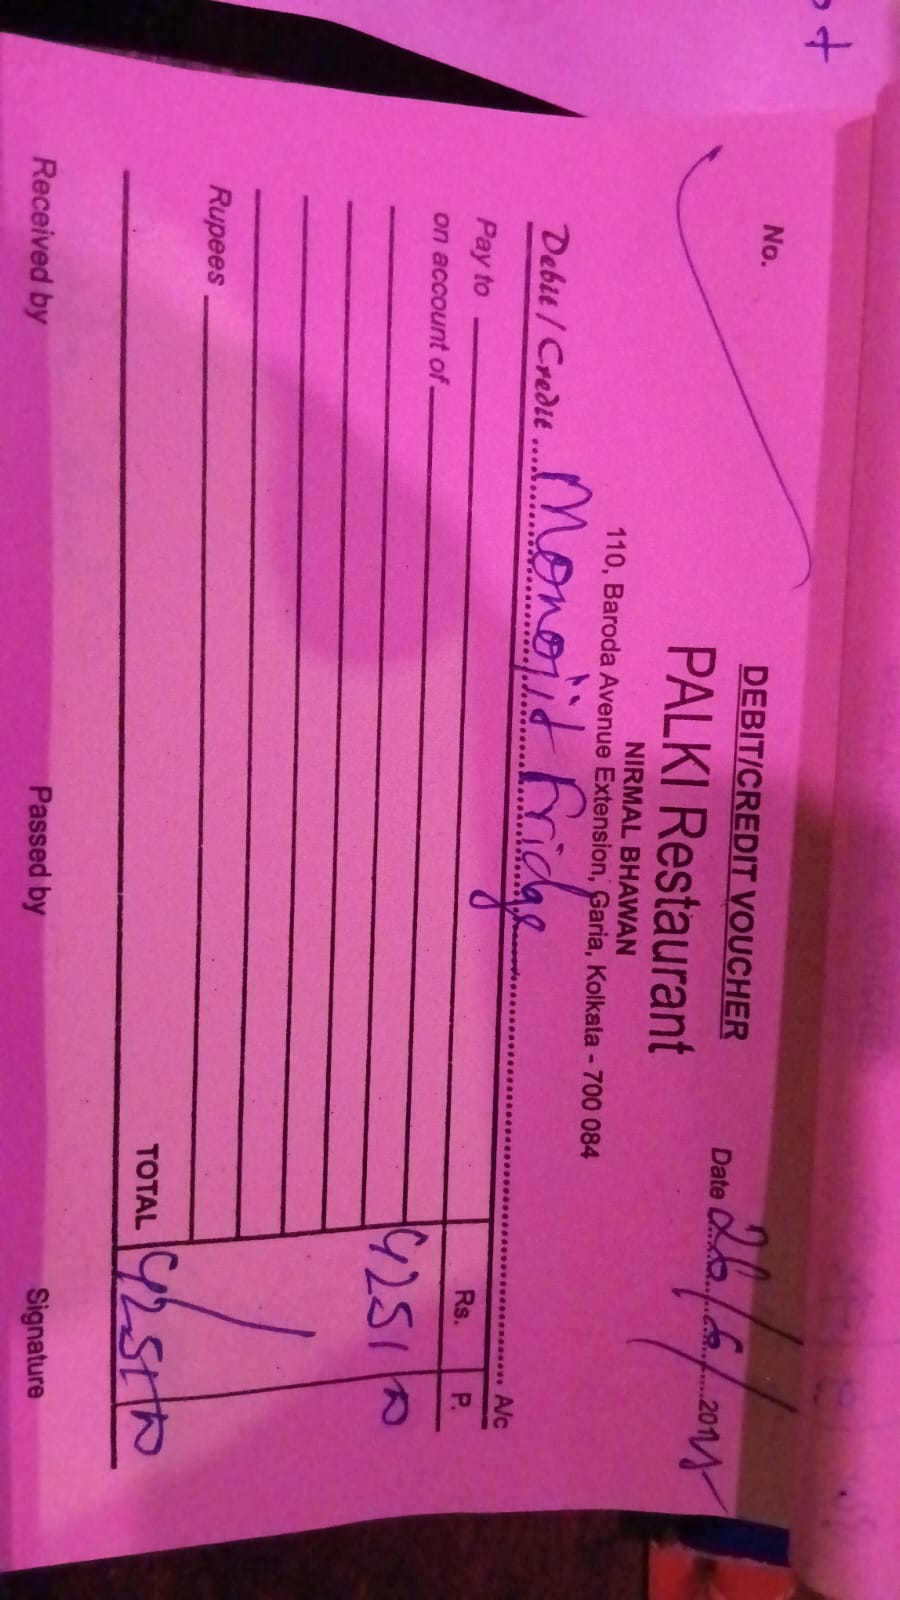 No.
DEBIT/CREDIT VOUCHER
PALKI Restaurant
NIRMAL BHAWAN
110, Baroda Avenue Extension, Garia, Kolkata - 700 084
Date 26/6/201
Debit / Credit Monojit Fridge A/c
Pay to Rs. P.
on account of
4251 00
Rupees
TOTAL 4251 00
Received by Passed by Signature